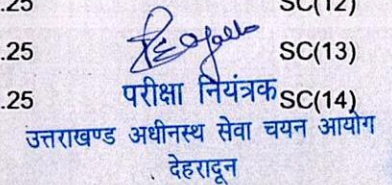 .25 SC(12)
.25 SC(13)
.25 परीक्षा नियंत्रक SC(14)
उत्तराखण्ड अधीनस्थ सेवा चयन आयोग
देहरादून